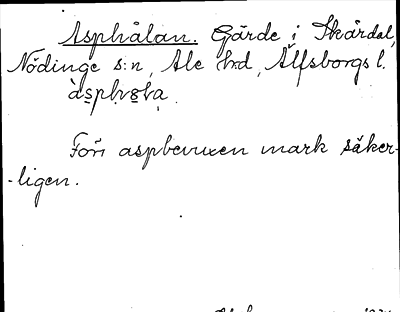 Asphålan. Gärde i Skårdal,
Nödinge s:n, Ale h:d, Älfsborgs l.
Förr aspbevuxen mark säker-
-ligen.